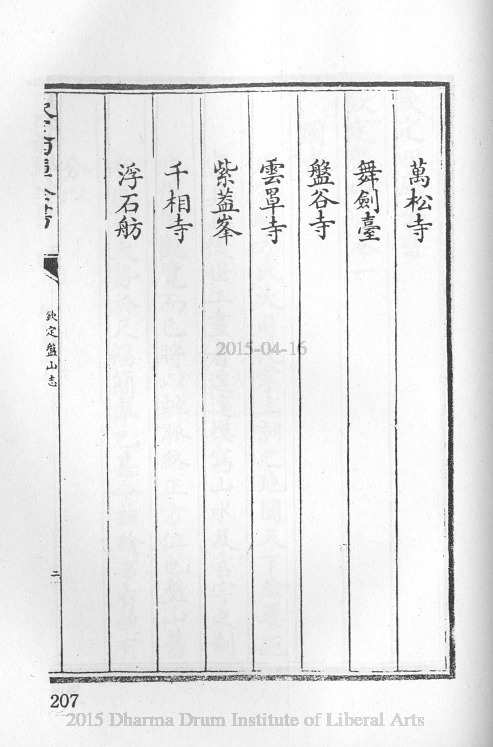 萬松寺
舞劍臺
盤谷寺
雲罩寺
紫葢峯
千相寺
浮石舫
欽定盤山志
二
207
2015-04-16
2015 Dharma Drum Institute of Liberal Arts